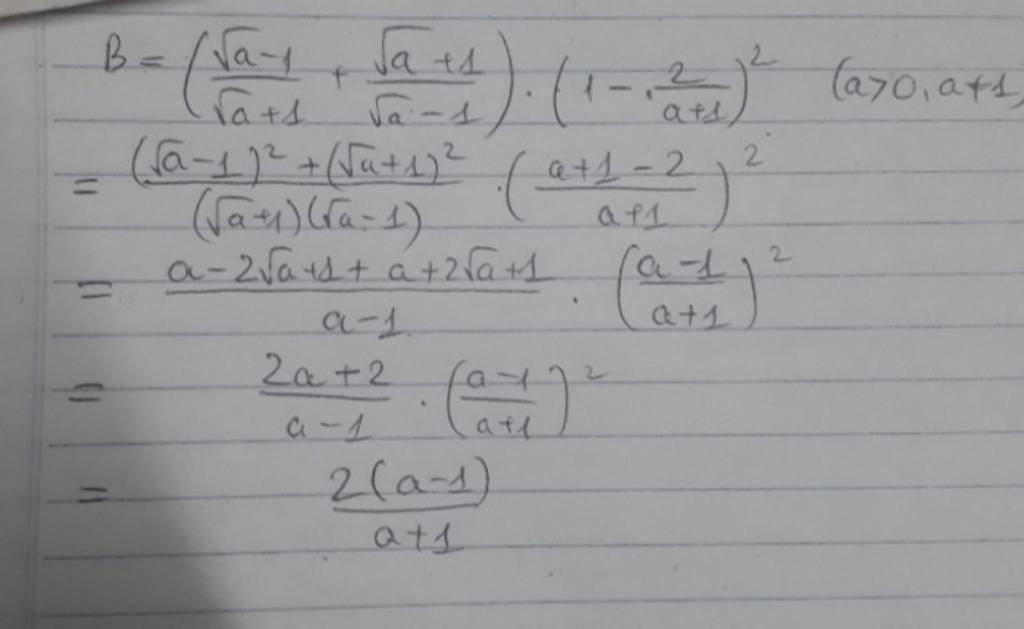 B = (\frac{\sqrt{a}-1}{\sqrt{a}+1} + \frac{\sqrt{a}+1}{\sqrt{a}-1}) \cdot (1 - \frac{2}{a+1})^2 (a>0, a≠1)
= \frac{(\sqrt{a}-1)^2 + (\sqrt{a}+1)^2}{(\sqrt{a}+1)(\sqrt{a}-1)} \cdot (\frac{a+1-2}{a+1})^2
= \frac{a-2\sqrt{a}+1+a+2\sqrt{a}+1}{a-1} \cdot (\frac{a-1}{a+1})^2
= \frac{2a+2}{a-1} \cdot (\frac{a-1}{a+1})^2
= \frac{2(a-1)}{a+1}